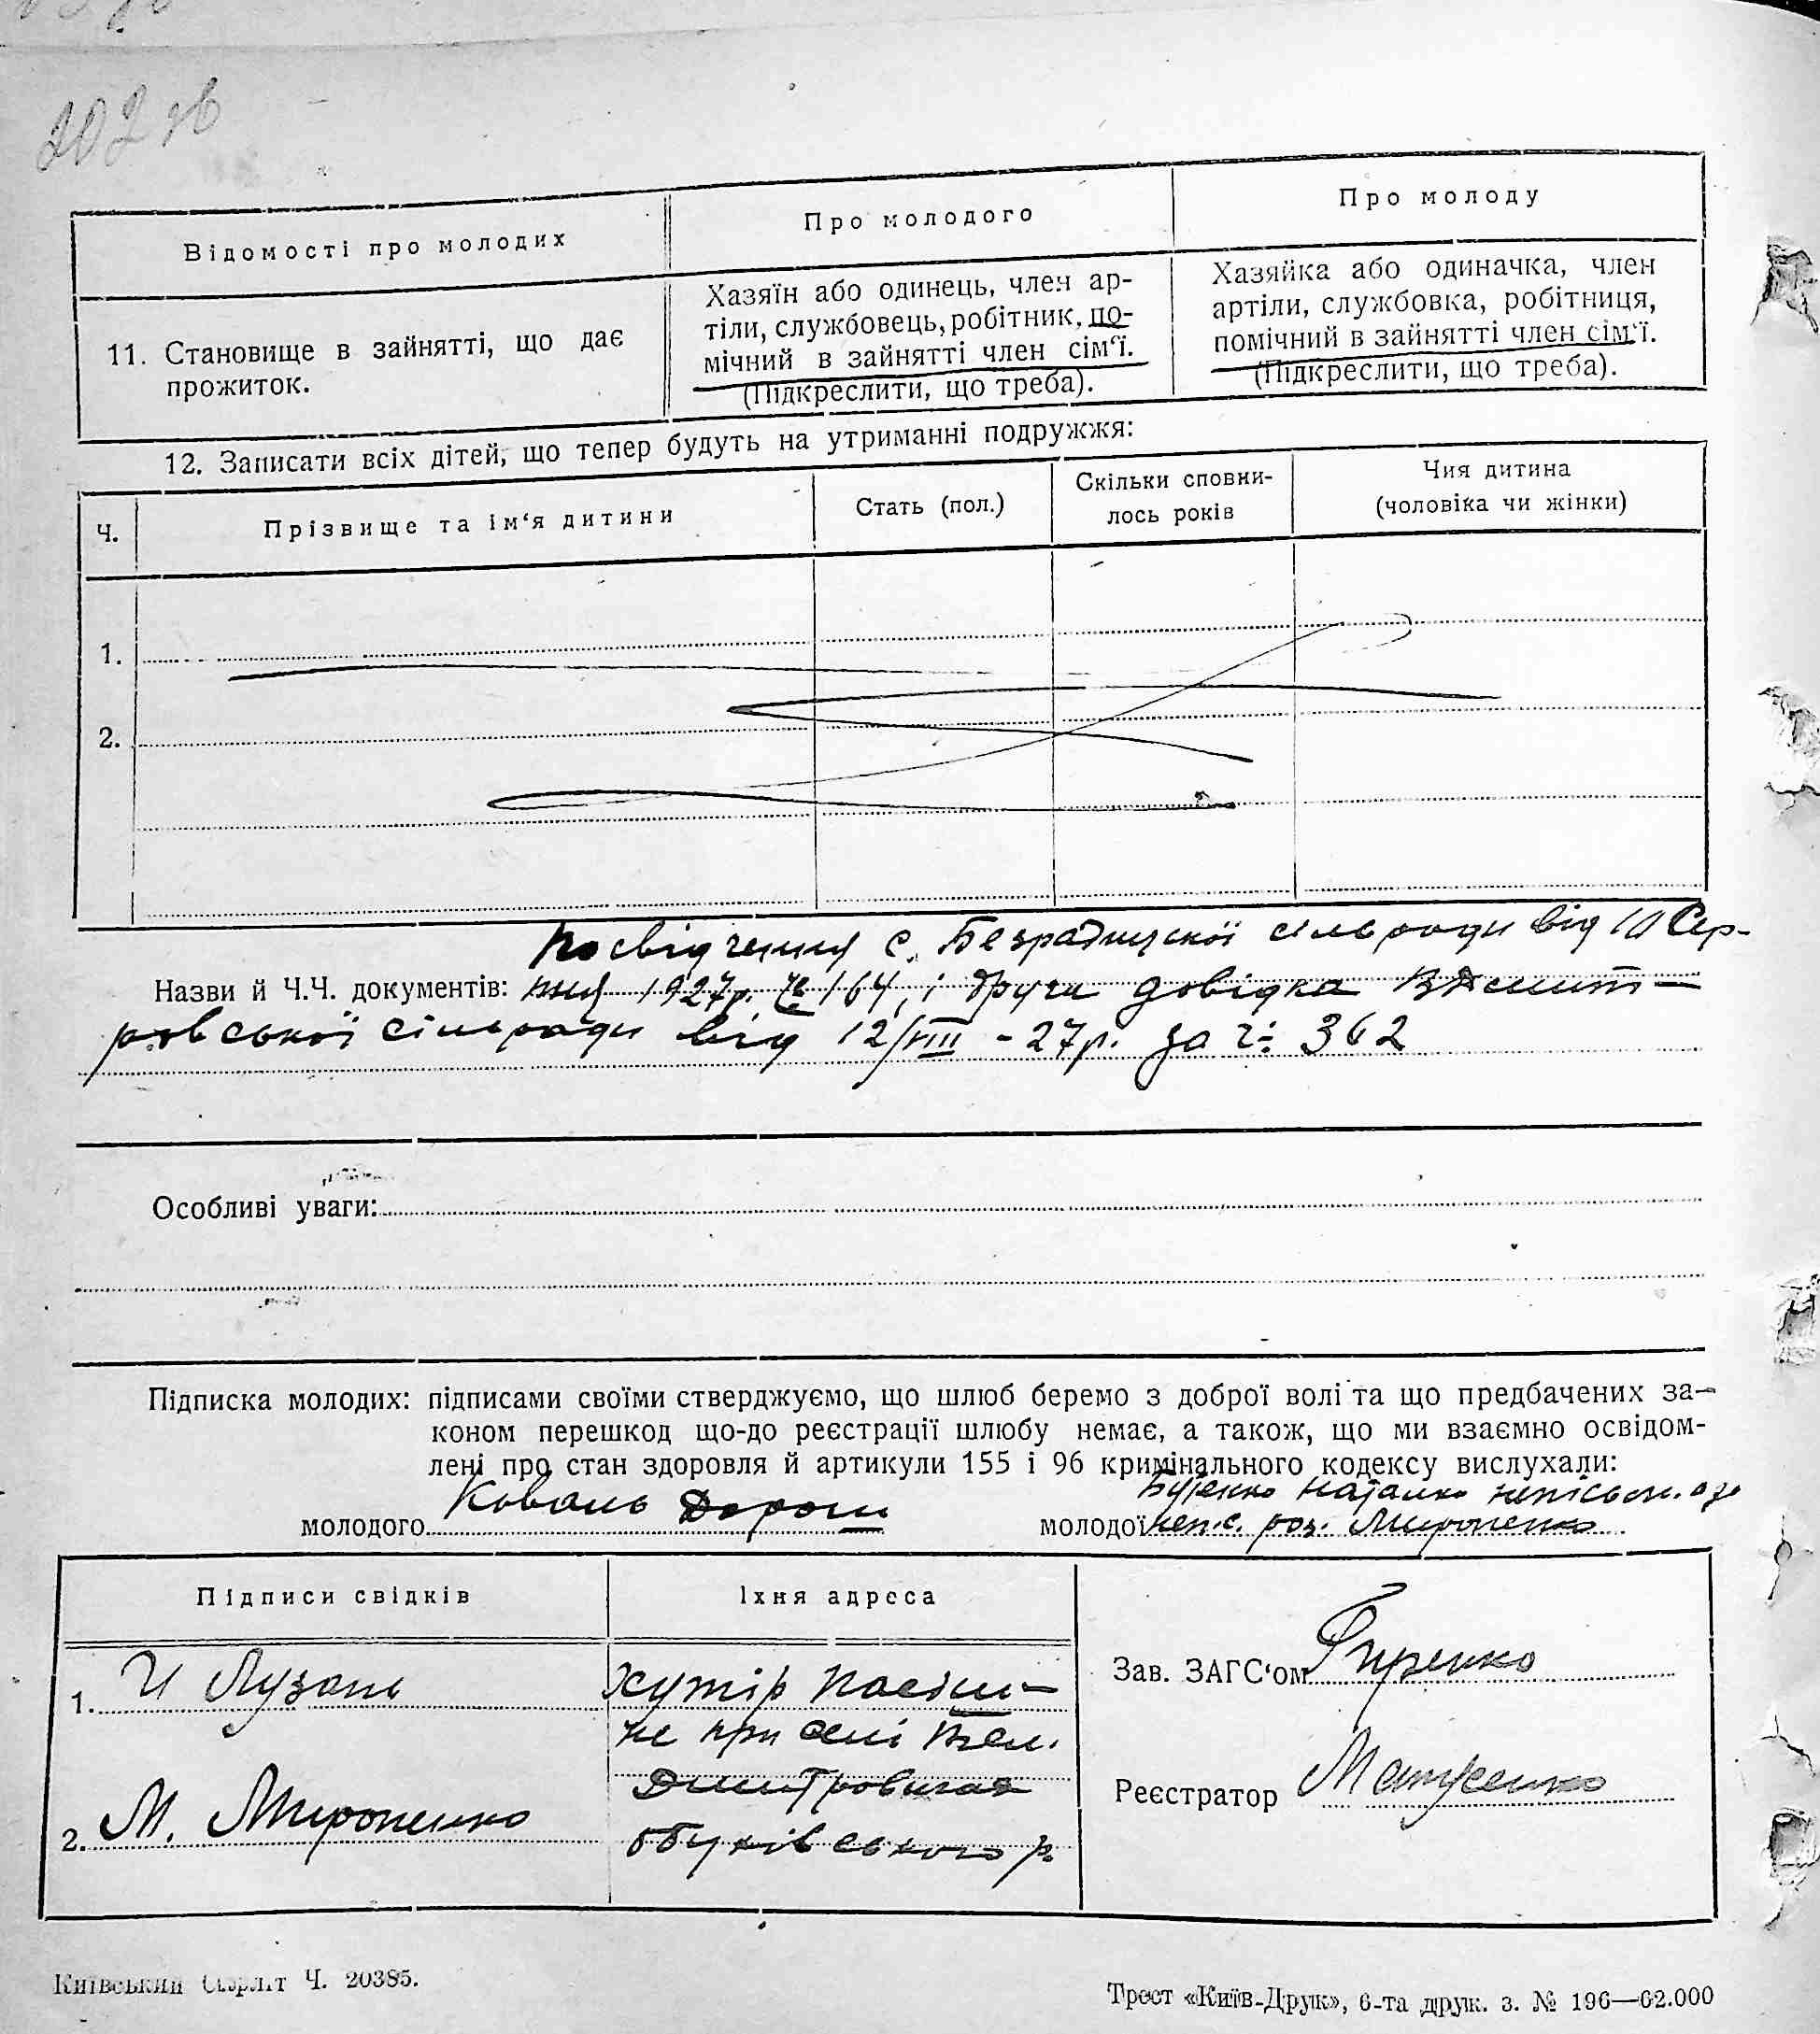 202 зв
Відомості про молодих
Про молодого
Про молоду
11. Становище в зайнятті, що дає
прожиток.
Хазяїн або одинець, член ар-
тіли, службовець, робітник, по-
мічний в зайнятті член сім‘ї.
(Підкреслити, що треба).
Хазяйка або одиначка, член
артіли, службовка, робітниця,
помічний в зайнятті член сім‘ї.
(Підкреслити, що треба).
12. Записати всіх дітей, що тепер будуть на утриманні подружжя:
Ч.
Прізвище та ім‘я дитини
Стать (пол.)
Скільки сповни-
лось років
Чия дитина
(чоловіка чи жінки)
1.
2.
Посвідчення с. Безрадицької сільради від 10 Сер-
Назви й Ч.Ч. документів: пня 1927р. № 164, і друга довідка В Дмит-
ровської сільради від 12/VIII - 27р. за ч: 362
Особливі уваги:
Підписка молодих: підписами своїми стверджуємо, що шлюб беремо з доброї волі та що предбачених за-
коном перешкод що-до реєстрації шлюбу немає, а також, що ми взаємно освідом-
лені про стан здоровля й артикули 155 і 96 кримінального кодексу вислухали:
молодого Коваль Дорош
Наталка неписьм. а за
молодої неп.с. роз. Мироненко
Підписи свідків
Їхня адреса
1. И Лузань
хутір Посіш-
не при селі Вел.
Дмитровичах
Обухівського р.
2. М. Мироненко
Зав. ЗАГС‘ом
Реєстратор
Київський Окрліт Ч. 20385.
Трест «Київ-Друк», 6-та друк. з. № 196—62.000